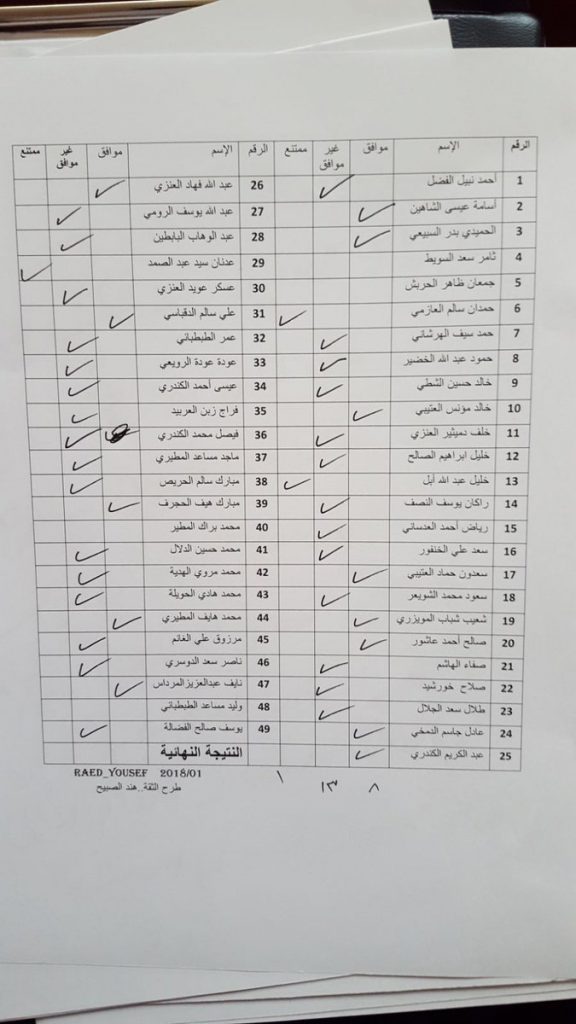 الرقم الإسم موافق غير موافق ممتنع الرقم الإسم موافق غير موافق ممتنع
1 أحمد نبيل الفضل 26 عبد الله فهاد العنزي
2 أسامة عيسى الشاهين 27 عبد الله يوسف الرومي
3 الحميدي بدر السبيعي 28 عبد الوهاب البابطين
4 ثامر سعد السويط 29 عدنان سيد عبد الصمد
5 جمعان ظاهر الحربش 30 عسكر عويد العنزي
6 حمدان سالم العازمي 31 علي سالم الدقباسي
7 حمد سيف الهرشاني 32 عمر الطبطبائي
8 حمود عبد الله الخضير 33 عودة عودة الرويعي
9 خالد حسين الشطي 34 عيسى أحمد الكندري
10 خالد مؤنس العتيبي 35 فراج زبن العربيد
11 خلف دميثير العنزي 36 فيصل محمد الكندري
12 خليل ابراهيم الصالح 37 ماجد مساعد المطيري
13 خليل عبد الله أبل 38 مبارك سالم الحريص
14 راكان يوسف النصف 39 مبارك هيف الحجرف
15 رياض أحمد العدساني 40 محمد براك المطير
16 سعد علي الخنفور 41 محمد حسين الدلال
17 سعدون حماد العتيبي 42 محمد مروي الهدية
18 سعود محمد الشويعر 43 محمد هادي الحويلة
19 شعيب شباب المويزري 44 محمد هايف المطيري
20 صالح أحمد عاشور 45 مرزوق علي الغانم
21 صفاء الهاشم 46 ناصر سعد الدوسري
22 صلاح خورشيد 47 نايف عبدالعزيزالمرداس
23 طلال سعد الجلال 48 وليد مساعد الطبطبائي
24 عادل جاسم الدمخي 49 يوسف صالح الفضالة
25 عبد الكريم الكندري النتيجة النهائية
٨ ١٣ ١ RAED_YOUSEF 2018/01
طرح الثقة..هند الصبيح